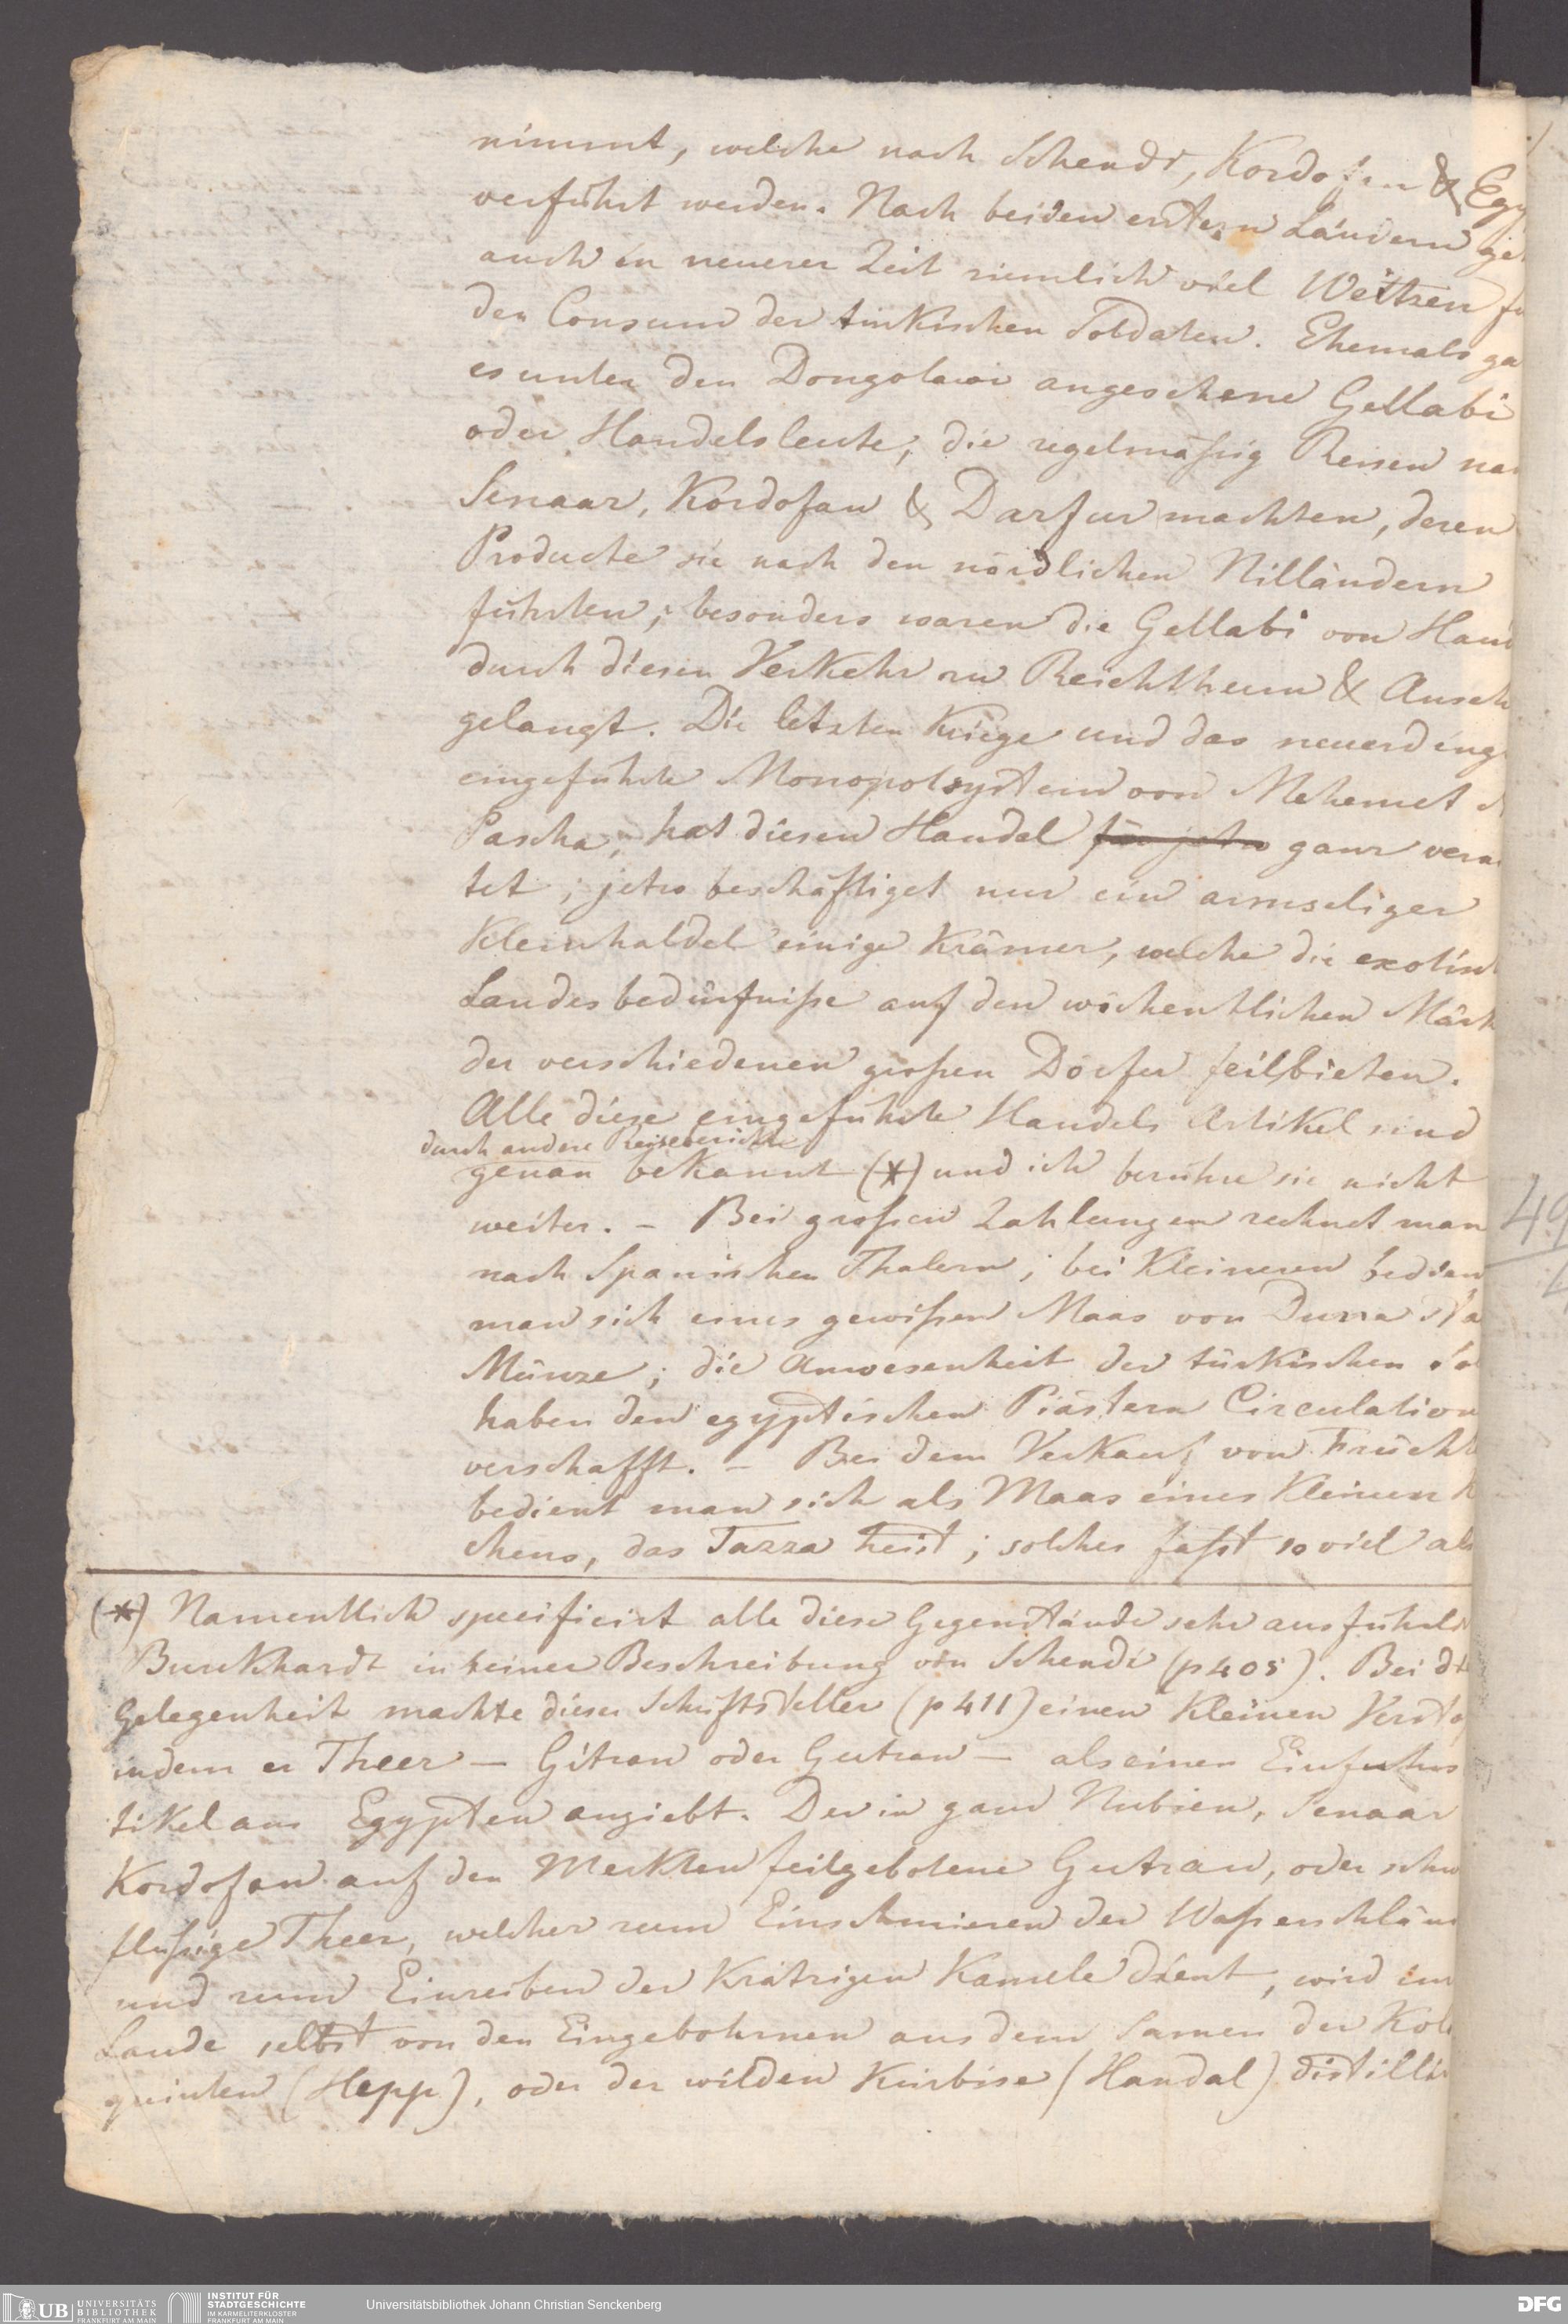 nimmt, welche nach Schendi, Kordofan & Egy
verführt werden. Nach beiden erstern Ländern geh
auch in neuerer Zeit ziemlich viel Weitzen fü
den Consum der turkischen Soldaten. Ehemals ga
es unter den Dongolawi angesehene Gellabi
oder Handelsleute, die regelmäßig Reisen na
Senaar, Kordofan & Darfur machten, deren
Producte sie nach den nördlichen Nilländern
führten; besonders waren die Gellabi von Han
durch diesen Verkehr zu Reichthum & Anseh
gelangt. Die letzten Kriege und das neuerding
eingeführte Monopolsystem von Mehemet A
Pascha, hat diesen Handel für jetzo ganz vern
tet; jetzo beschäftiget nur ein armseliger
Kleinhaldel einige Krämer, welche die exotisch
Landesbedürfniße auf den wöchentlichen Märk
der verschiedenen großen Dörfer feilbieten.
Alle diese eingeführte Handels Artikel sind
durch andere Reiseberichte
genau bekannt (*) und ich berühre sie nicht
weiter. – Bei großen Zahlungen rechnet man
nach Spanischen Thalern; bei Kleineren bedien
man sich eines gewißen Maas von Durra sta
Münze; die Anwesenheit der türkischen Sol
haben den egyptischen Piastern Circulation
verschafft. – Bei dem Verkauf von Frücht
bedient man sich als Maas eines Kleinen K
chens, das Tazza heist; solches faßt so viel als
(*) Namentlich specificirt alle diese Gegenstände sehr ausführli
Burckhardt in seiner Beschreibung von Schendi (p 405). Bei d
Gelegenheit machte dieser Schriftsteller (p 411) einen Kleinen Versto
indem er Theer – Gitran oder Gutran – als einen Einfuhrs
tikel aus Egypten angiebt. Der in ganz Nubien, Senaar
Kordofan auf den Merkten feilgebotene Gutran, oder schw
flußige Theer, welcher zum Einschmieren der Waßerschläu
und zum Einreiben der Krätzigen Kamele dient, wird im
Lande selbst von den Eingebohrnen aus dem Samen der Kolo
quinten (Hepp), oder der wilden Kürbise (Handal) distillir
49
UB UNIVERSITÄTS
BIBLIOTHEK
FRANKFURT AM MAIN
INSTITUT FÜR
STADTGESCHICHTE
IM KARMELITERKLOSTER
FRANKFURT AM MAIN
Universitätsbibliothek Johann Christian Senckenberg
DFG